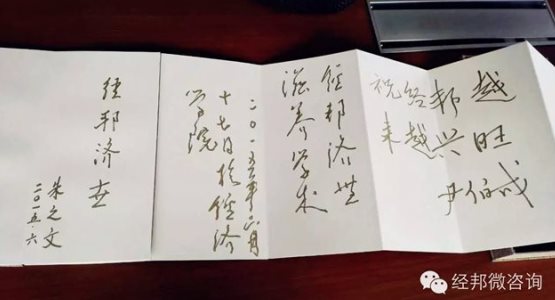 祝经邦越
来越兴旺
尹伯成
经邦济世
滋养学术
二〇一五年六月
十七日於经济
学院
经邦济世
朱之文
二〇一五.六
经邦微咨询